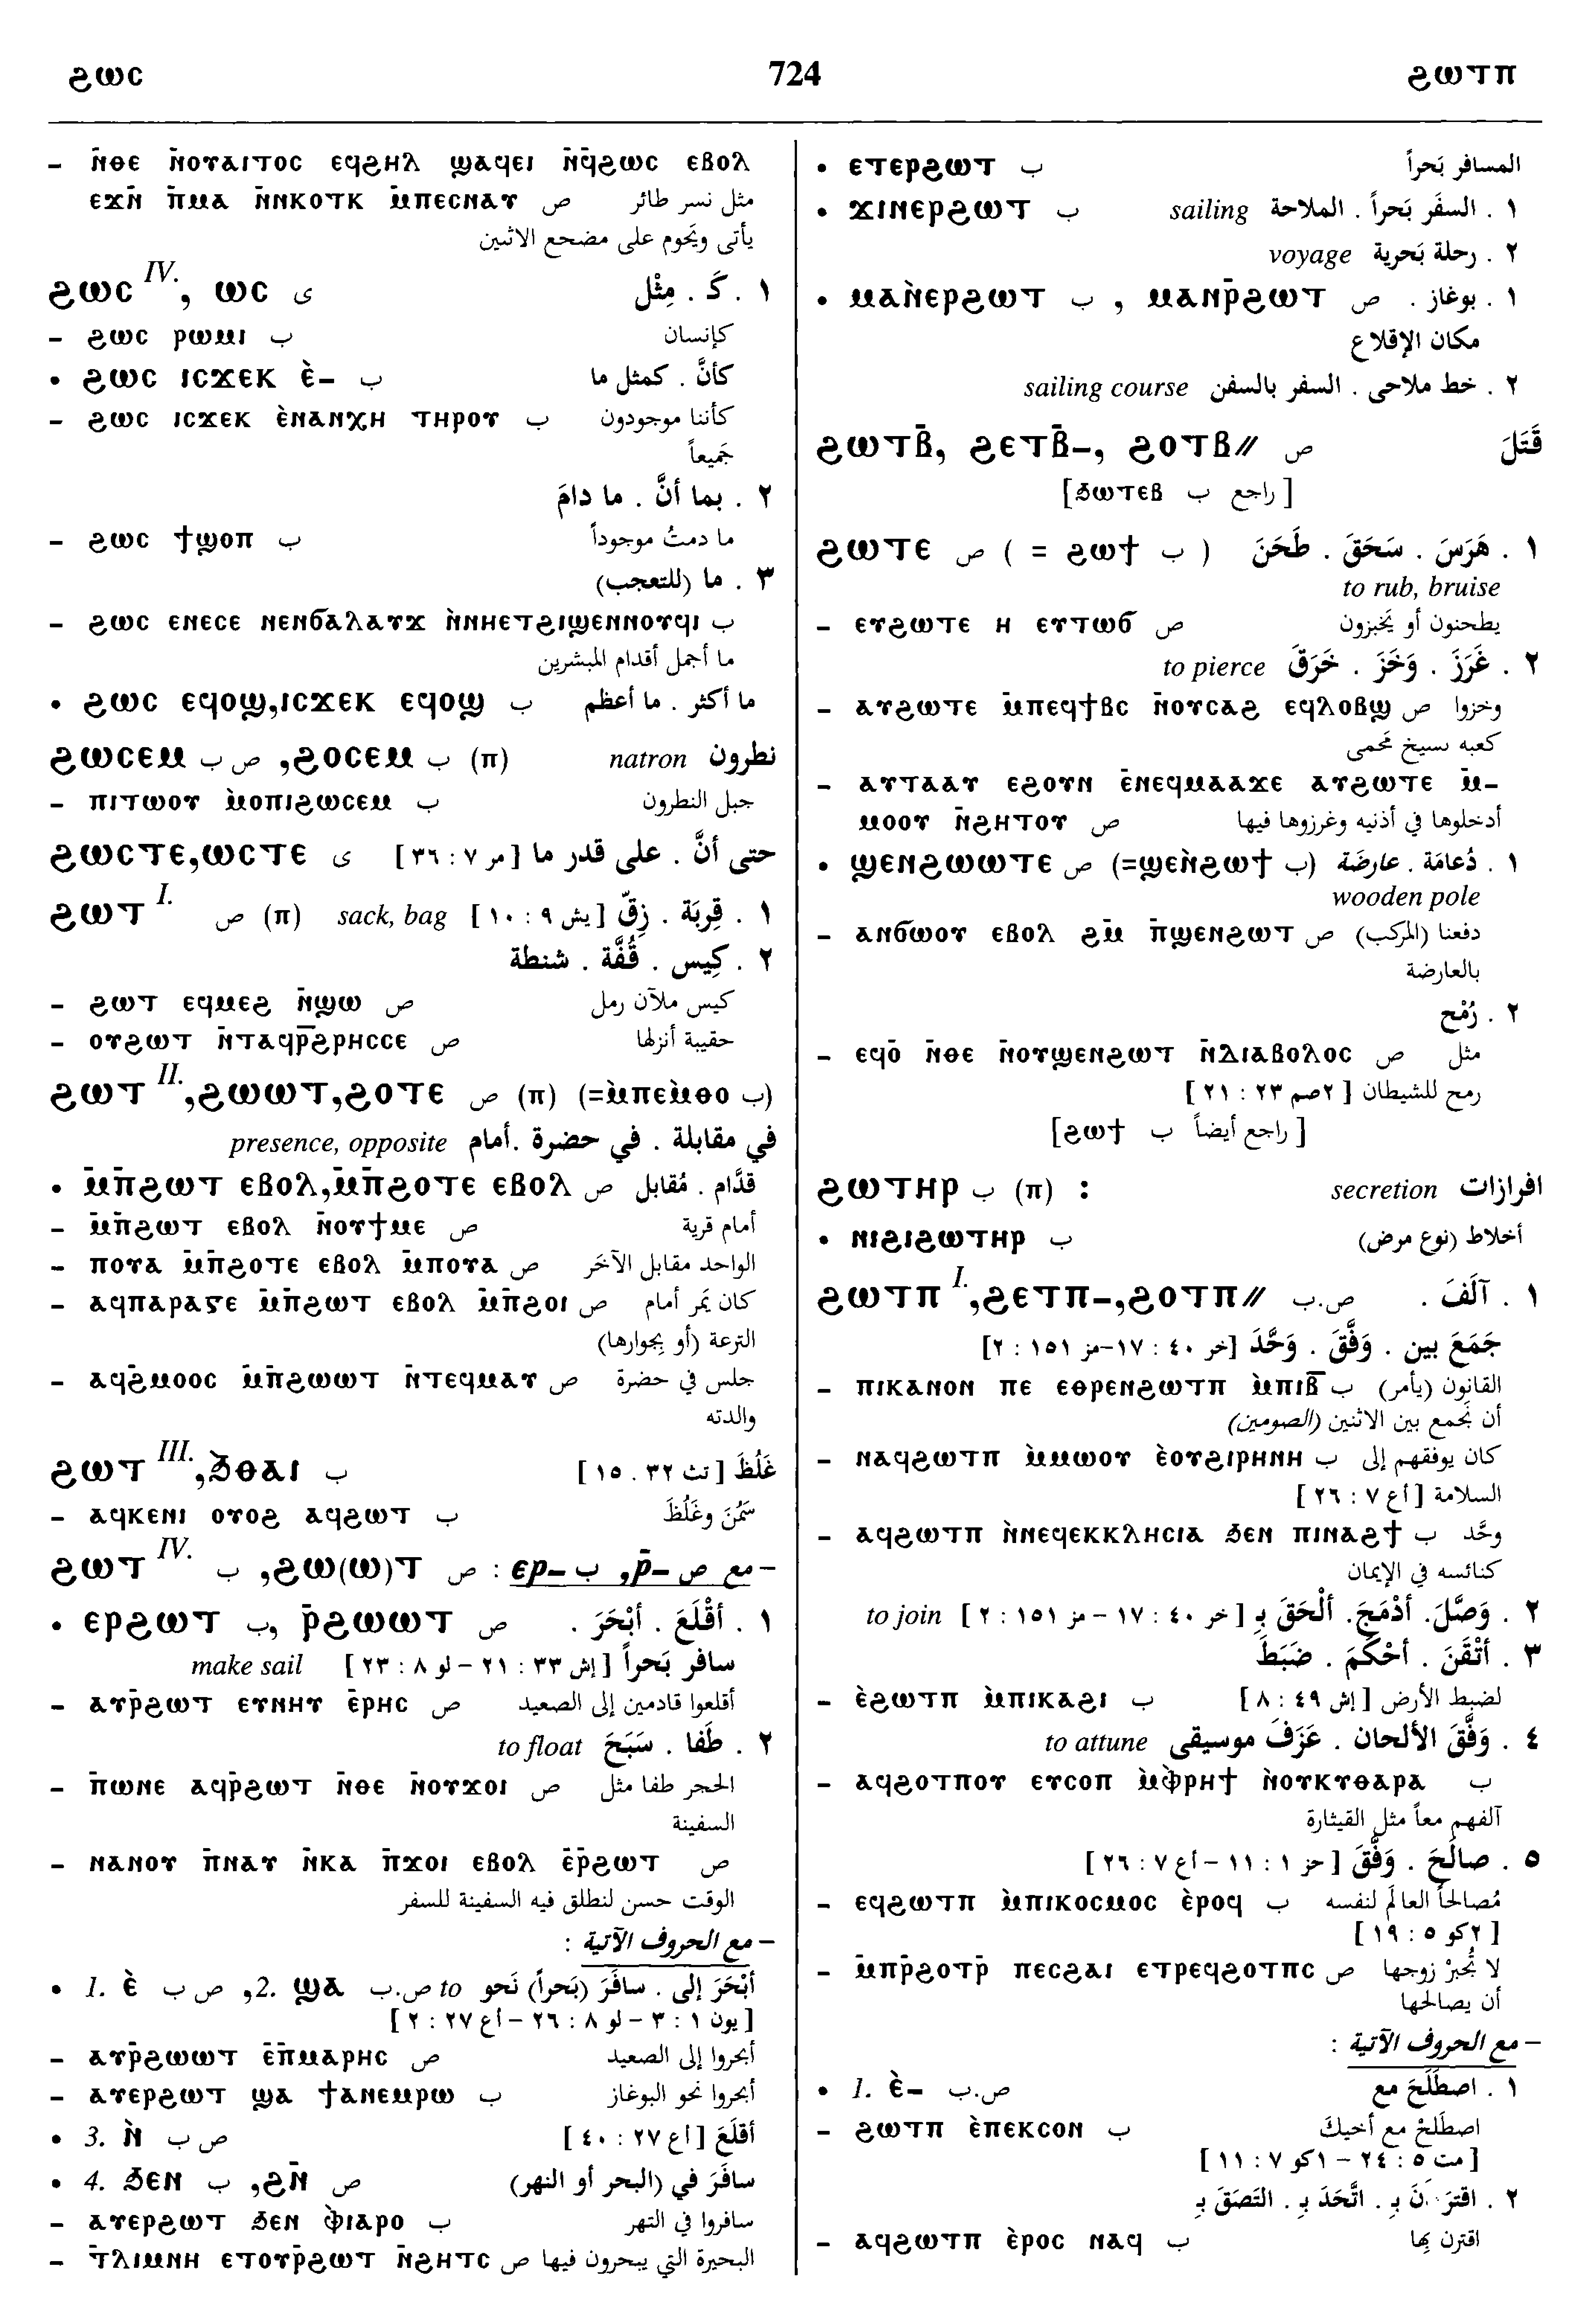 ϩⲱⲥ 724 ϩⲱⲧⲡ
– ⲛ̄ⲑⲉ ⲛ̄ⲟⲩⲁⲓⲧⲟⲥ ⲉϥϩⲏⲗ ϣⲁϥⲉⲓ ⲛ̄ϥ̄ϩⲱⲥ ⲉⲃⲟⲗ
ⲉϫⲛ̄ ⲡ̄ⲙⲁ ⲛ̄ⲛⲕⲟⲧⲕ ⲙ̄ⲡⲉⲥⲛⲁⲩ ص مثل نسر طائر
يأتى ويَحوم على مضجع الاثنين
ϩⲱⲥ IV., ⲱⲥ ى ١ . كَـ . مِثْل
– ϩⲱⲥ ⲣⲱⲙⲓ ب كإنسان
• ϩⲱⲥ ⲓⲥϫⲉⲕ ⲉ̀– ب كأنَّ . كمثل ما
– ϩⲱⲥ ⲓⲥϫⲉⲕ ⲉ̀ⲛⲁⲛⲭⲏ ⲧⲏⲣⲟⲩ ب كأننا موجودون
جَميعاً
٢ . بما أنَّ . ما دامَ
– ϩⲱⲥ ϯϣⲟⲡ ب ما دمتُ موجوداً
٣ . ما (للتعجب)
– ϩⲱⲥ ⲉⲛⲉⲥⲉ ⲛⲉⲛϭⲁⲗⲁⲩϫ ⲛ̀ⲛⲏⲉⲧϩⲓϣⲉⲛⲛⲟⲩϥⲓ ب
ما أجمل أقدام المبشرين
• ϩⲱⲥ ⲉϥⲟϣ,ⲓⲥϫⲉⲕ ⲉϥⲟϣ ب ما أكثر . ما أعظم
ϩⲱⲥⲉⲙ ص ب, ϩⲟⲥⲉⲙ ب (ⲡ) natron نطرون
– ⲡⲓⲧⲱⲟⲩ ⲙ̀ⲟⲡⲓϩⲱⲥⲉⲙ ب جبل النطرون
ϩⲱⲥⲧⲉ,ⲱⲥⲧⲉ ى حتى أنَّ . على قدر ما [مر ٧ : ٣٦]
ϩⲱⲧ I. ص (ⲡ) sack, bag ١ . قِربَة . زِقّ [يش ٩ : ١٠]
٢ . كِيس . قُفَّة . شنطة
– ϩⲱⲧ ⲉϥⲙⲉϩ ⲛ̄ϣⲱ ص كيس ملآن رمل
– ⲟⲩϩⲱⲧ ⲛ̄ⲧⲁϥⲣ̄ϩⲣⲏⲥⲥⲉ ص حقيبة أنزلها
ϩⲱⲧ II.,ϩⲱⲱⲧ,ϩⲟⲧⲉ ص (ⲡ) (=ⲙ̀ⲡⲉⲙ̀ⲑⲟ ب)
presence, opposite في مقابلة . في حضرة .أمام
• ⲙ̄ⲡ̄ϩⲱⲧ ⲉⲃⲟⲗ,ⲙ̄ⲡ̄ϩⲟⲧⲉ ⲉⲃⲟⲗ ص قدَّام . مُقابل
– ⲙ̄ⲡ̄ϩⲱⲧ ⲉⲃⲟⲗ ⲛ̄ⲟⲩϯⲙⲉ ص أمام قرية
– ⲡⲟⲩⲁ ⲙ̄ⲡ̄ϩⲟⲧⲉ ⲉⲃⲟⲗ ⲙ̄ⲡⲟⲩⲁ ص الواحد مقابل الآخَر
– ⲁϥⲡⲁⲣⲁⲅⲉ ⲙ̄ⲡ̄ϩⲱⲧ ⲉⲃⲟⲗ ⲙ̄ⲡ̄ϩⲟⲓ ص كان يَمر أمام
الترعة (أو بجوارها)
– ⲁϥϩ̄ⲙⲟⲟⲥ ⲙ̄ⲡ̄ϩⲱⲱⲧ ⲛ̄ⲧⲉϥⲙⲁⲩ ص جلس في حضرة
والدته
ϩⲱⲧ III.,ϧ̀ⲑⲁⲓ ب غَلُظَ [تث ٣٢ . ١٥]
– ⲁϥⲕⲉⲛⲓ ⲟⲩⲟϩ ⲁϥϩⲱⲧ ب سَمُنَ وغَلُظَ
ϩⲱⲧ IV. ب ,ϩⲱ(ⲱ)ⲧ ص : –مع ص –ⲣ̄, ب –ⲉⲣ
• ⲉⲣϩⲱⲧ ب, ⲣ̄ϩⲱⲱⲧ ص ١ . أقْلَعَ . أبْحَرَ .
سافر بَحراً [إش ٣٣ : ٢١ – لو ٨ : ٢٣] make sail
– ⲁⲩⲣ̄ϩⲱⲧ ⲉⲩⲛⲏⲩ ⲉ̄ⲣⲏⲥ ص أقلعوا قادمين إلى الصعيد
٢ . طَفا . سَبَحَ to float
– ⲡ̄ⲱⲛⲉ ⲁϥⲣ̄ϩⲱⲧ ⲛ̄ⲑⲉ ⲛ̄ⲟⲩϫⲟⲓ ص الحجر طفا مثل
السفينة
– ⲛⲁⲛⲟⲩ ⲡ̄ⲛⲁⲩ ⲛ̄ⲕⲁ ⲡ̄ϫⲟⲓ ⲉⲃⲟⲗ ⲉ̄ⲣ̄ϩⲱⲧ ص
الوقت حسن لنطلق فيه السفينة للسفر
– مع الحروف الآتية :
• 1. ⲉ̀ ص ب ,2. ϣⲁ ص.ب to أبْحَرَ إلى . سافَرَ (بَحراً) نَحو
[يون ١ : ٣ – لو ٨ : ٢٦ – أع ٢٧ : ٢]
– ⲁⲩⲣ̄ϩⲱⲱⲧ ⲉ̄ⲡ̄ⲙⲁⲣⲏⲥ ص أبحروا إلى الصعيد
– ⲁⲩⲉⲣϩⲱⲧ ϣⲁ ϯⲁⲛⲉⲙⲣⲱ ب أبحروا نحو البوغاز
• 3. ⲛ̀ ص ب أقلَعَ [أع ٢٧ : ٤٠]
• 4. ϧⲉⲛ ب ,ϩⲛ̄ ص سافَرَ في (البحر أو النهر)
– ⲁⲩⲉⲣϩⲱⲧ ϧⲉⲛ ⲫⲓⲁⲣⲟ ب سافروا في النهر
– ⲧ̄ⲗⲓⲙⲛⲏ ⲉⲧⲟⲩⲣ̄ϩⲱⲧ ⲛ̄ϩⲏⲧⲥ ص البحيرة التي يبحرون فيها
• ⲉⲧⲉⲣϩⲱⲧ ب المسافر بَحراً
• ϫⲓⲛⲉⲣϩⲱⲧ ب sailing ١ . السفَر بَحراً . الملاحة
voyage ٢ . رحلة بَحرية
• ⲙⲁⲛ̀ⲉⲣϩⲱⲧ ب , ⲙⲁⲛⲣ̄ϩⲱⲧ ص ١ . بوغاز .
مكان الإقلاع
sailing course ٢ . خط ملاحى . السفر بالسفن
ϩⲱⲧⲃ̄, ϩⲉⲧⲃ̄–, ϩⲟⲧⲃ// ص قَتَلَ
[راجع ب ϧⲱⲧⲉⲃ]
ϩⲱⲧⲉ ص ( = ϩⲱϯ ب ) ١ . هَرَسَ . سَحَقَ . طَحَنَ
to rub, bruise
– ⲉⲩϩⲱⲧⲉ ⲏ ⲉⲩⲧⲱϭ ص يطحنون أو يَخبزون
to pierce ٢ . غَرَزَ . وَخَزَ . خَرَقَ
– ⲁⲩϩⲱⲧⲉ ⲙ̄ⲡⲉϥϯⲃⲥ ⲛ̄ⲟⲩⲥⲁϩ ⲉϥⲗⲟⲃϣ ص وخزوا
كعبه بسيخ مَحمى
– ⲁⲩⲧⲁⲁⲩ ⲉϩⲟⲩⲛ ⲉ̄ⲛⲉϥⲙⲁⲁϫⲉ ⲁⲩϩⲱⲧⲉ ⲙ̄–
ⲙⲟⲟⲩ ⲛ̄ϩⲏⲧⲟⲩ ص أدخلوها في أذنيه وغرزوها فيها
• ϣⲉⲛϩⲱⲱⲧⲉ ص (=ϣⲉⲛ̀ϩⲱϯ ب) ١ . دُعامَة . عارِضَة
wooden pole
– ⲁⲛϭⲱⲟⲩ ⲉⲃⲟⲗ ϩⲙ̄ ⲡ̄ϣⲉⲛϩⲱⲧ ص دفعنا (المركب)
بالعارضة
٢ . رُمْح
– ⲉϥⲟ̄ ⲛ̄ⲑⲉ ⲛ̄ⲟⲩϣⲉⲛϩⲱⲧ ⲛ̄ⲇⲓⲁⲃⲟⲗⲟⲥ ص مثل
رمح للشيطان [٢صم ٢٣ : ٢١]
[راجع أيضاً ب ϩⲱϯ]
ϩⲱⲧⲏⲣ ب (ⲡ) : secretion افرازات
• ⲛⲓϩⲓϩⲱⲧⲏⲣ ب أخلاط (نوع مرض)
ϩⲱⲧⲡ I.,ϩⲉⲧⲡ–,ϩⲟⲧⲡ// ص.ب ١ . آلَفَ .
جَمَعَ بين . وَفَّقَ . وَحَّدَ [خر ٤٠ : ١٧–مز ١٥١ : ٢]
– ⲡⲓⲕⲁⲛⲟⲛ ⲡⲉ ⲉⲑⲣⲉⲛϩⲱⲧⲡ ⲙ̀ⲡⲓⲃ̅ ب القانون (يأمر)
أن نَجمع بين الاثنين (الصومين)
– ⲛⲁϥϩⲱⲧⲡ ⲙ̀ⲙⲱⲟⲩ ⲉ̀ⲟⲩϩⲓⲣⲏⲛⲏ ب كان يوفقهم إلى
السلامة [أع ٧ : ٢٦]
– ⲁϥϩⲱⲧⲡ ⲛ̀ⲛⲉϥⲉⲕⲕⲗⲏⲥⲓⲁ ϧⲉⲛ ⲡⲓⲛⲁϩϯ ب وحَّد
كنائسه في الإيمان
to join ٢ . وَصَّلَ. أدْمَجَ. ألْحَقَ بِـ [خر ٤٠ : ١٧ – مز ١٥١ : ٢]
٣ . أتْقَنَ . أحْكَمَ . ضَبَطَ
– ⲉ̀ϩⲱⲧⲡ ⲙ̀ⲡⲓⲕⲁϩⲓ ب لضبط الأرض [إش ٤٩ : ٨]
to attune ٤ . وَفَّقَ الألحان . عَزَفَ موسيقى
– ⲁϥϩⲟⲧⲡⲟⲩ ⲉⲩⲥⲟⲡ ⲙ̀ⲫⲣⲏϯ ⲛ̀ⲟⲩⲕⲩⲑⲁⲣⲁ ب
آلفهم معاً مثل القيثارة
٥ . صالَحَ . وَفَّقَ [حز ١ : ١١ – أع ٧ : ٢٦]
– ⲉϥϩⲱⲧⲡ ⲙ̀ⲡⲓⲕⲟⲥⲙⲟⲥ ⲉ̀ⲣⲟϥ ب مُصالحاً العالَم لنفسه
[٢كو ٥ : ١٩]
– ⲙ̄ⲡⲣ̄ϩⲟⲧⲣ̄ ⲡⲉⲥϩⲁⲓ ⲉⲧⲣⲉϥϩⲟⲧⲡⲥ ص لا تُجبرْ زوجها
أن يصالحها
– مع الحروف الآتية :
• 1. ⲉ̀– ص.ب ١ . اصطَلَحَ مع
– ϩⲱⲧⲡ ⲉ̀ⲡⲉⲕⲥⲟⲛ ب اصطَلحْ مع أخيك
[مت ٥ : ٢٤ – ١كو ٧ : ١١]
٢ . اقترَنَ بِـ . اتَّحَدَ بِـ . التَصَقَ بِـ
– ⲁϥϩⲱⲧⲡ ⲉ̀ⲣⲟⲥ ⲛⲁϥ ب اقترن بِها